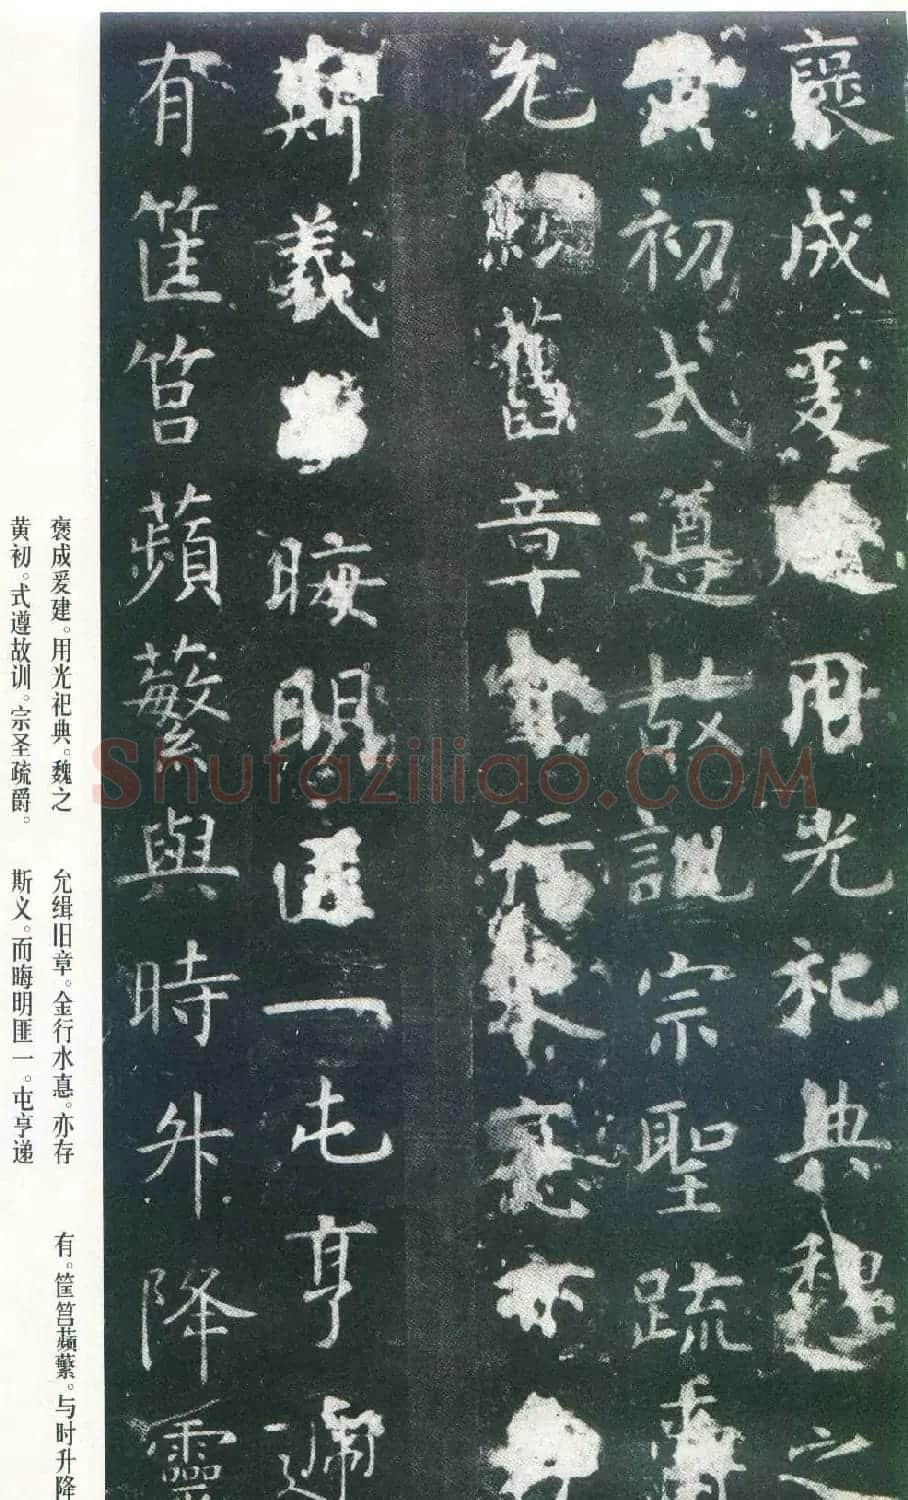 襃成爰建用光祀典魏之
黃初式遵故訓宗聖疏爵
允緝舊章金行水悳亦存
斯義晦明匪一屯亨遞
有筐筥蘋蘩與時升降靈
褒成爰建。用光祀典。魏之
黄初。式遵故训。宗圣疏爵。
允缉旧章。金行水悳。亦存
斯义。而晦明匪一。屯亨递
有。筐筥蘋蘩。与时升降
Shufaziliao.COM